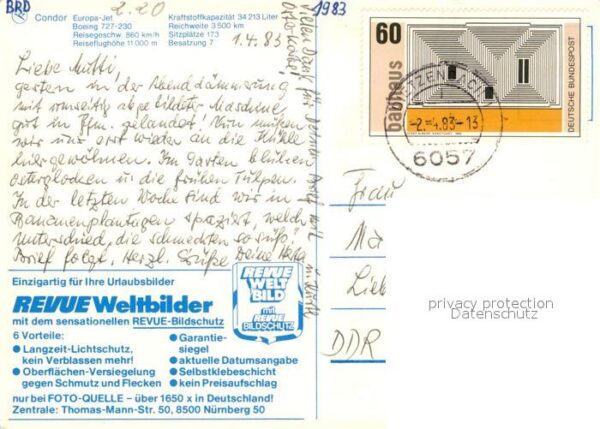 BRD
2.20
1983
Condor Europa-Jet
Boeing 727-230
Reisegeschw. 860 km/h
Reiseflughöhe 11 000 m
Kraftstoffkapazität 34 213 Liter
Reichweite 3 500 km
Sitzplätze 173
Besatzung 7
1.4.83
Liebe Mutti,
gestern in der Abenddämmerung
mit umseitig abgebildeter Maschine
gut in Ffm. gelandet! Nun müssen
wir uns erst wieder an die Kühle
hier gewöhnen. Im Garten blühen
Osterglocken u. die frühen Tulpen.
In der letzten Woche sind wir in
Bananenplantagen spaziert, welch
Unterschied, die schmeckten so süß!
Brief folgt. Herzl. Grüße Deine
Vielen Dank für Deinen
Einzigartig für Ihre Urlaubsbilder
REVUE Weltbilder
mit dem sensationellen REVUE-Bildschutz
6 Vorteile:
● Langzeit-Lichtschutz,
kein Verblassen mehr!
● Oberflächen-Versiegelung
gegen Schmutz und Flecken
● Garantie-
siegel
● aktuelle Datumsangabe
● Selbstklebeschicht
● kein Preisaufschlag
nur bei FOTO-QUELLE – über 1650 x in Deutschland!
Zentrale: Thomas-Mann-Str. 50, 8500 Nürnberg 50
REVUE
WELT
BILD
mit
REVUE
BILDSCHUTZ
60
bauhaus
DEUTSCHE BUNDESPOST
-2.-4.83-13
6057
Frau
Ma
Lie
DDR
privacy protection
Datenschutz